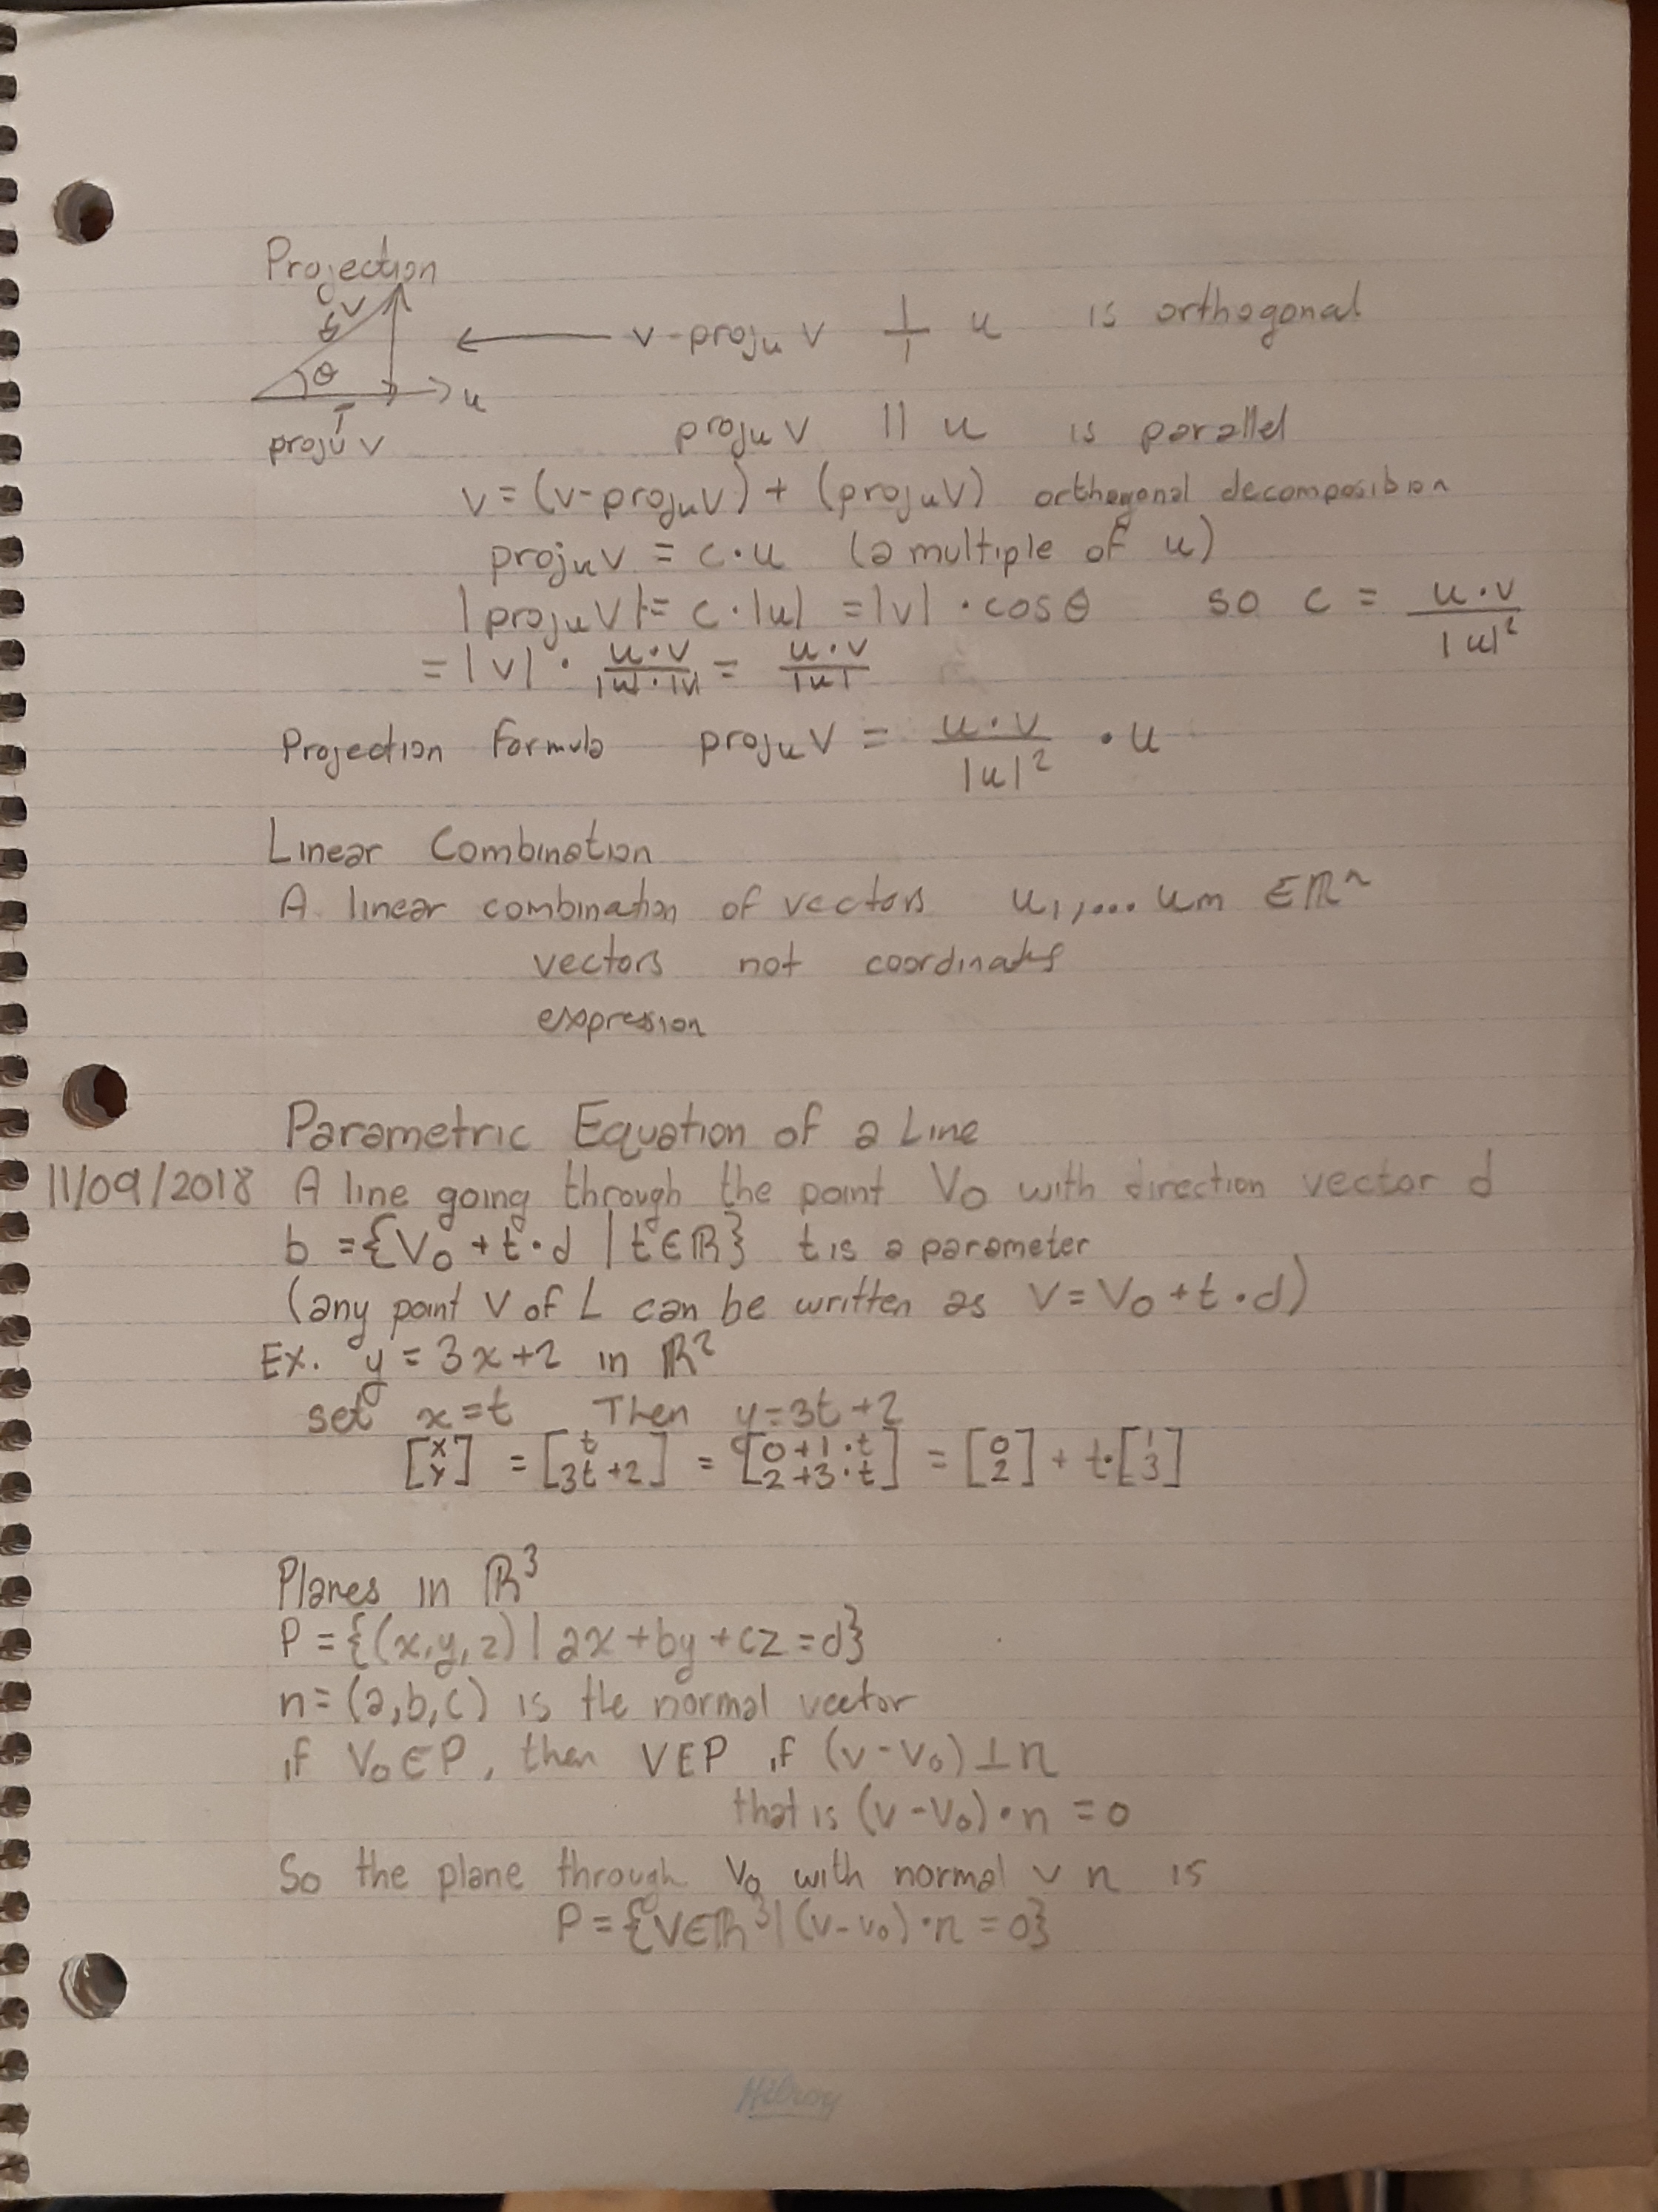 Projection
v
θ
u
proju v
v-proju v ⊥ u is orthogonal
proju v || u is parallel
v = (v-proju v) + (proju v) orthogonal decomposition
proju v = c·u (a multiple of u)
|proju v| = c·|u| = |v|·cosθ so c = u·v / |u|²
= |v| · u·v / |u|·|v| = u·v / |u|
Projection formula proju v = u·v / |u|² · u
Linear Combination
A linear combination of vectors u₁,... um ∈ ℝⁿ
vectors not coordinates
expression
Parametric Equation of a Line
11/09/2018 A line going through the point V₀ with direction vector d
b = {V₀ + t·d | t∈ℝ} t is a parameter
(any point V of L can be written as V = V₀ + t·d)
Ex. y = 3x+2 in ℝ²
set x=t Then y=3t+2
[x y] = [t 3t+2] = [0+1·t 2+3·t] = [0 2] + t·[1 3]
Planes in ℝ³
P = {(x,y,z) | ax+by+cz=d}
n = (a,b,c) is the normal vector
if V₀∈P, then V∈P if (v-V₀)⊥n
that is (v-V₀)·n = 0
So the plane through V₀ with normal v n is
P = {V∈ℝ³ | (v-v₀)·n = 0}
Hilroy